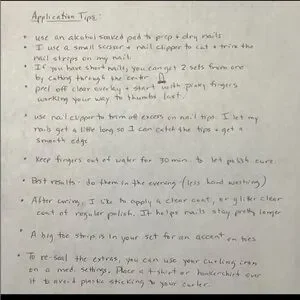 Application Tips:
• use an alcohol soaked pad to prep + dry nails
• I use a small scissor + nail clipper to cut + trim the
nail strips on my nail.
• If you have short nails, you can get 2 sets from one
by cutting through the center
• peel off clear overlay + start with pinky fingers
working your way to thumbs last.
• use nail clipper to trim off excess on nail tips. I let my
nails get a little long so I can catch the tips + get a
smooth edge
• Keep fingers out of water for 30 min. to let polish cure.
• Best results - do them in the evening (less hand washing)
• After curing, I like to apply a clear coat, or glitter clear
coat of regular polish. It helps nails stay pretty longer
• A big toe strip is in your set for an accent on toes
• To re-seal the extras, you can use your curling iron
on a med. settings. Place a t-shirt or hankerchief over
it to avoid plastic sticking to your curler.